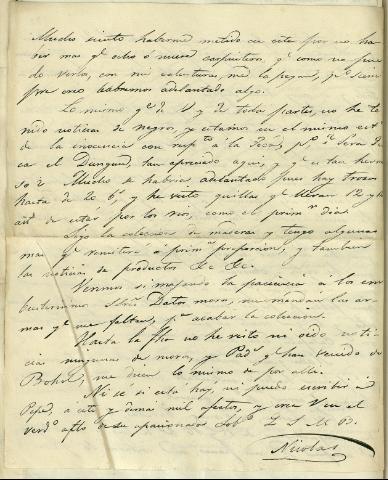 Mucho siento haberme metido en esto por no ha-
bir mas qe ocho o nueve carpinteros, qe como no pue-
do verlos, con mi calenturas, me la pegan, pr. siem
pre creo habremos adelantado algo.
Lo mismo qe de V y de todas partes, no he te-
nido noticias de negros, y estamos en el mismo est.
de la inocencia con respto a la
ca el Dungud, tan apreciado aquí, y qe es tan hermo
so? Mucho se habria adelantado pues hay trozos
hasta de 20 bs y he visto quillas qe tienen 12 y
de estas por los rios, como el primr dia.
Sigo la coleccion de maderas y tengo algunas
mas qe remitire á primr proporcion, y tambien
las noticias de productos &c &c.
Veremos si majando la paciencia á los
Datos moro, me mandan las ar-
mas qe me faltan, pa acabar la coleccion.
Hasta la fha no he visto ni oido noti
cias ningunas de moros, y Padrs qe han venido de
Bohol, me dicen lo mismo de por alla.
Ni se si está hay, ni puedo escribir á
Pepe, a este y demas mil afectos, y crea V en el
verdo afto de su apasionado Sobo Q S M B.
Nicolas